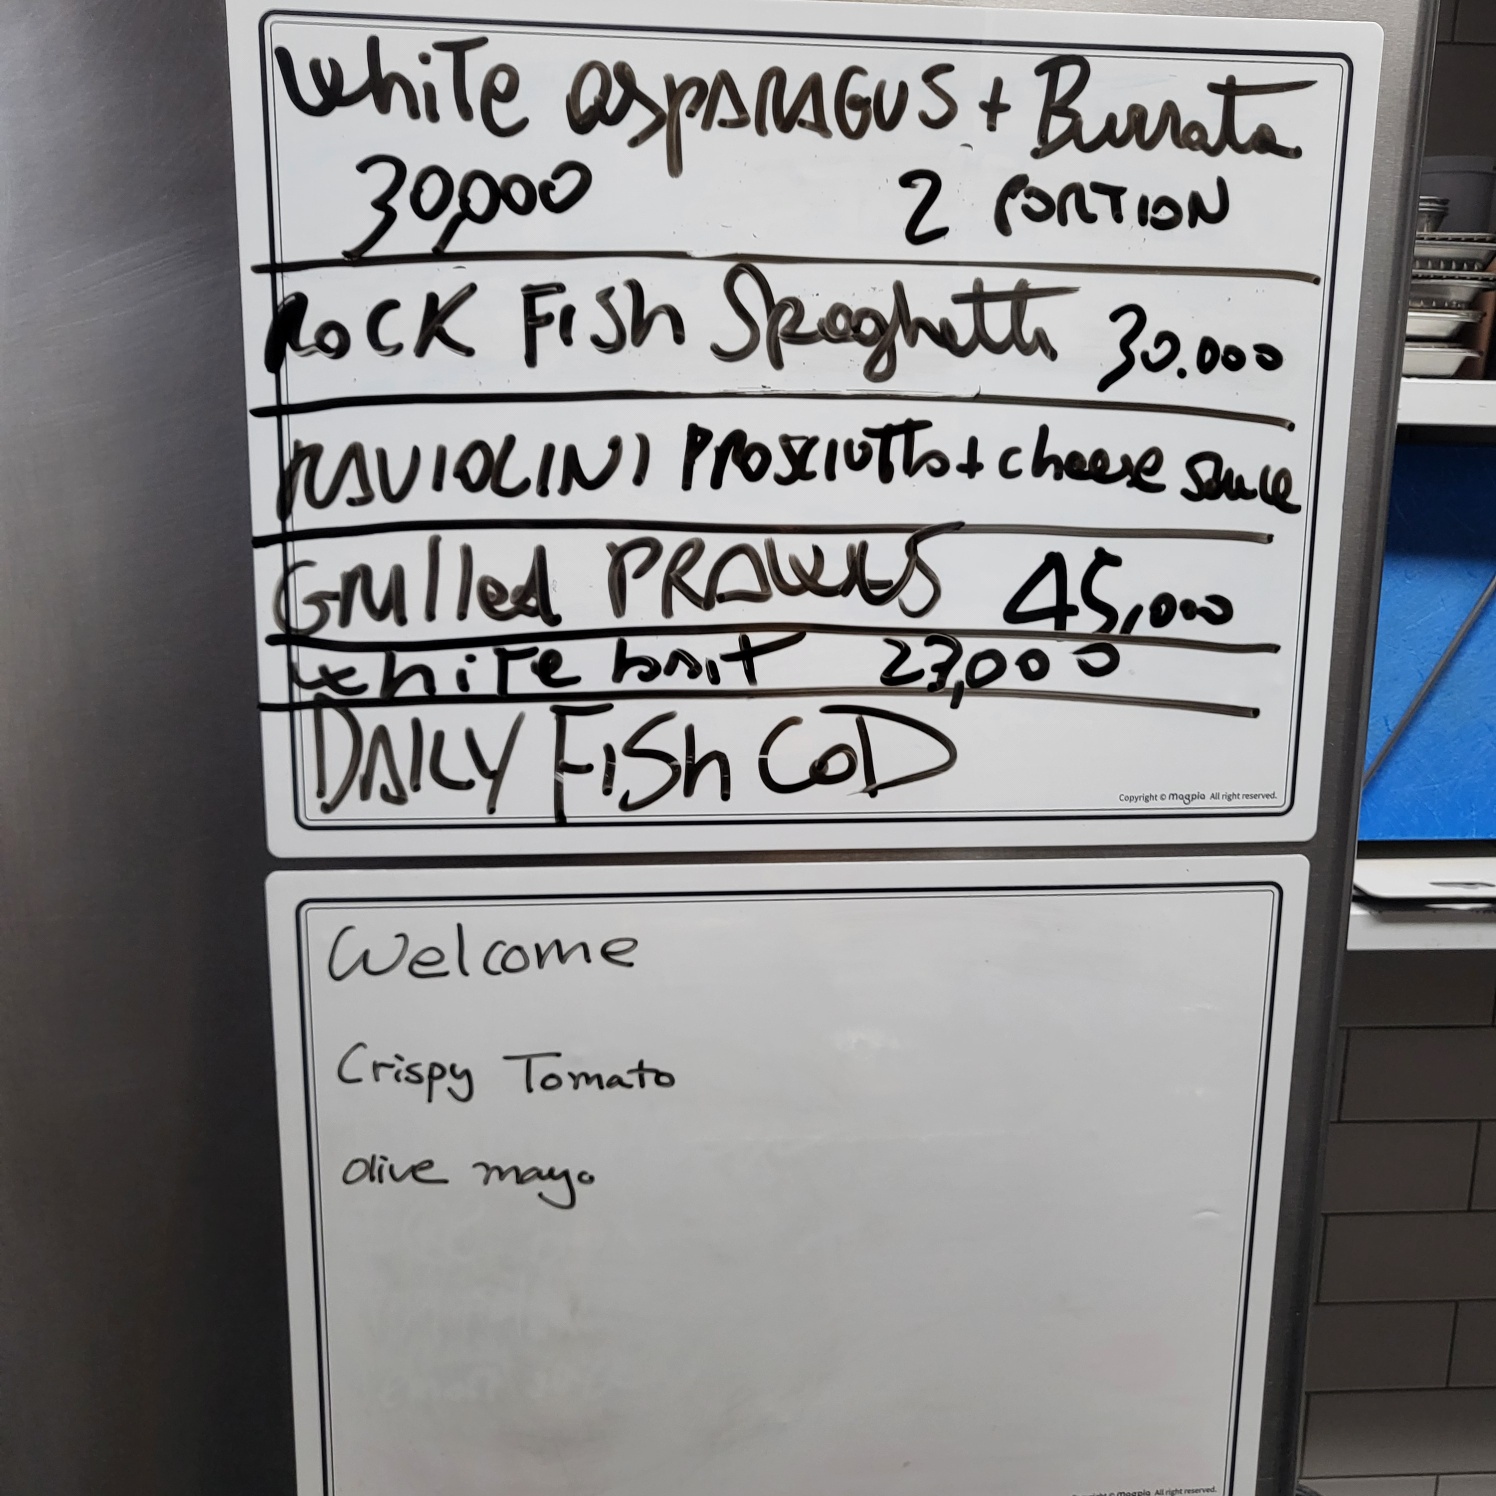 white aspARAGUS + Burrata
30,000 2 PORTION
ROCK FISh Spaghetti 30.000
RAVIOLINI PROSCIUTTO + cheese sauce
Grilled PRAWNS 45,000
white bait 23,000
DAILY FISh COD
Copyright © magpie All right reserved.
Welcome
Crispy Tomato
olive mayo
Copyright © magpie All right reserved.